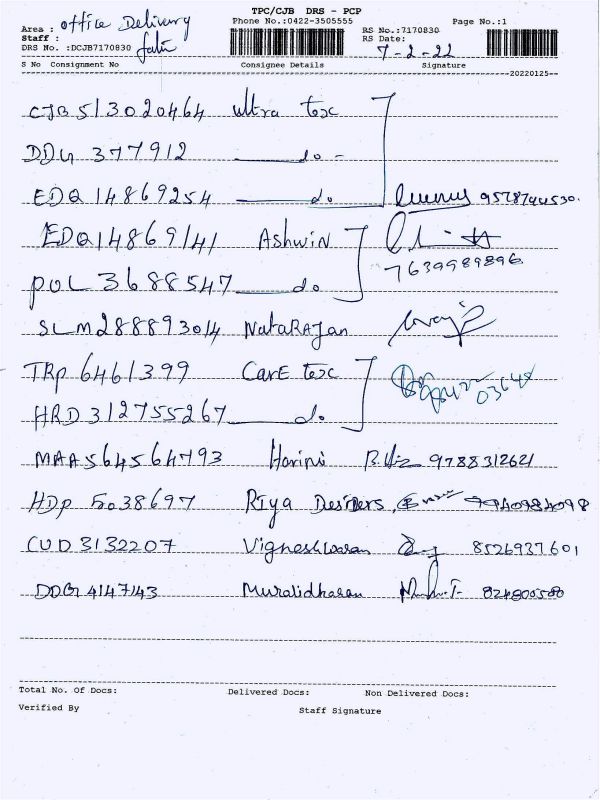 TPC/CJB DRS - PCP
Area : office Delivery Phone No.:0422-3505555 Page No.:1
Staff : RS No.:7170830
DRS No. :DCJB7170830 RS Date: 7-2-22
S No Consignment No Consignee Details Signature
20220125
CJB 513020464 Ultra tex
DDG 377912 do -
EDQ 14869254 do 9578744530.
EDQ14869141 Ashwin
7639989896
POL 3688547 do
SLM288893014 NataRAJan
TRP 6461399 CarE tex 03648
HRD312755267 do
MAA564564793 Harini 9788312621
HDP 5038697 Riya Desiners 9940984098
CUD3132207 Vigneshwaran 8526937601
DDG4147143 Muralidharan 824800580
Total No. Of Docs: Delivered Docs: Non Delivered Docs:
Verified By Staff Signature